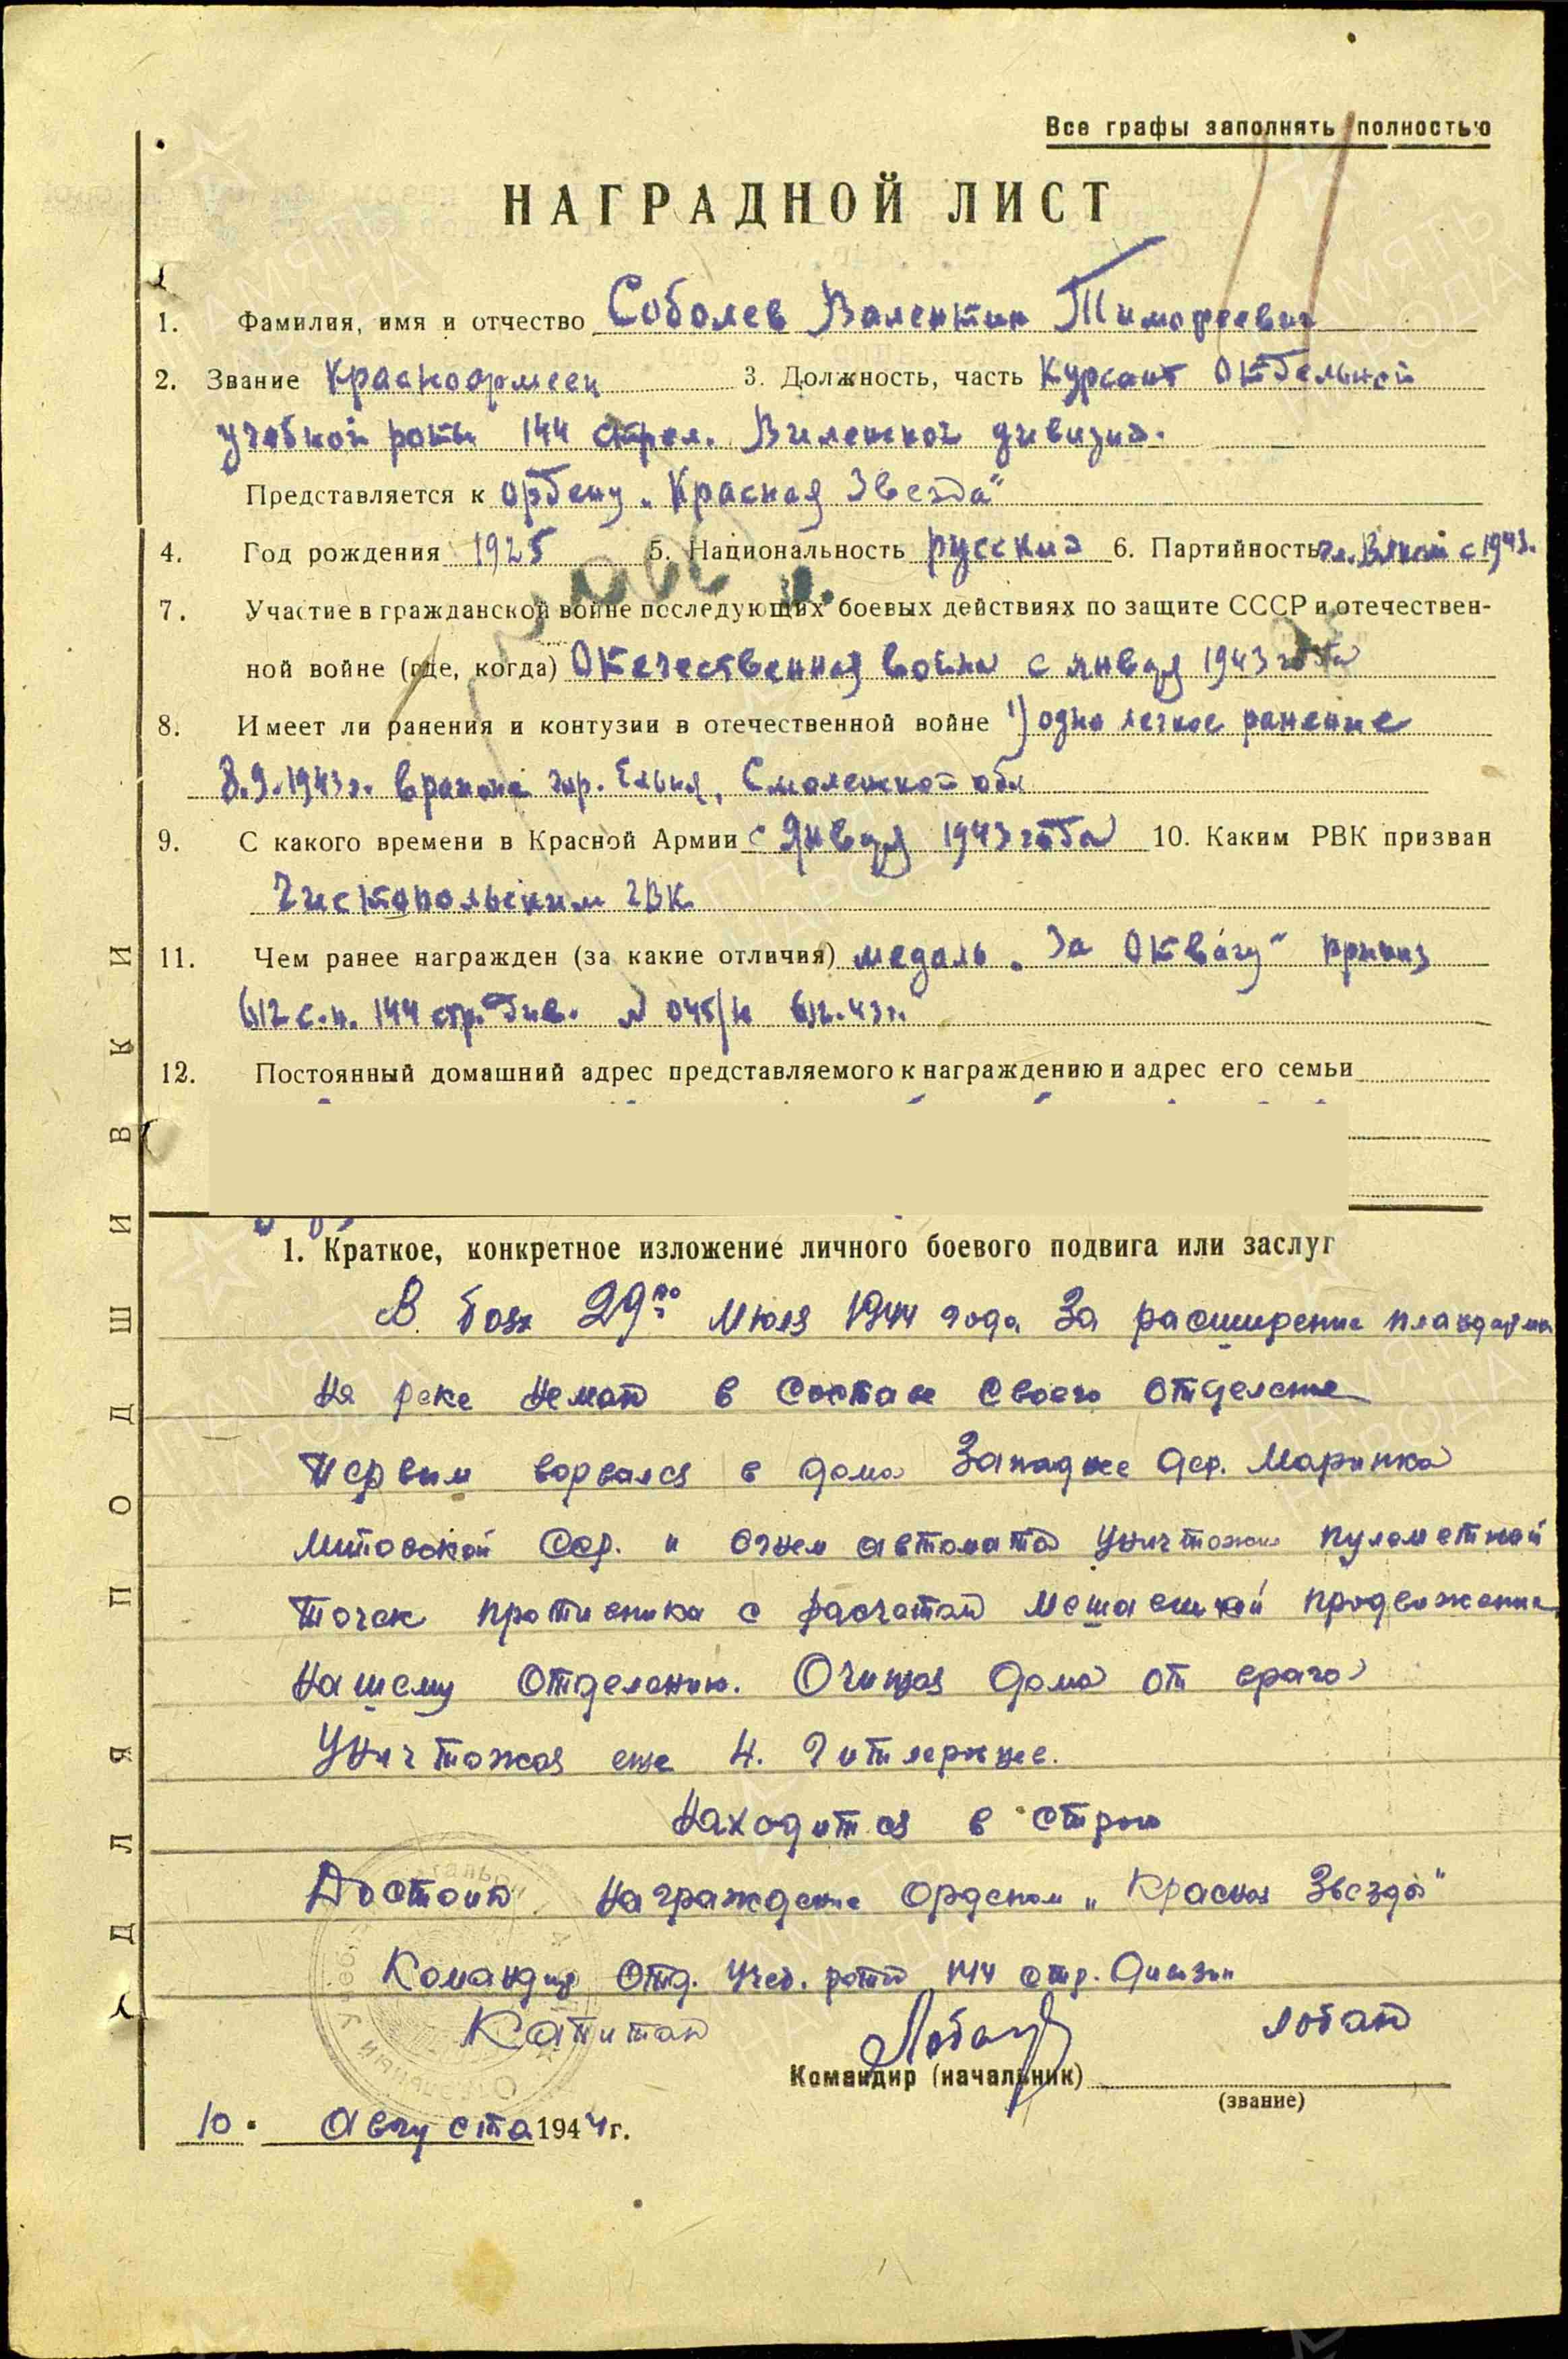 Все графы заполнять полностью
НАГРАДНОЙ ЛИСТ
1. Фамилия, имя и отчество Соболев Валентин Тимофеевич
2. Звание Красноармеец 3. Должность, часть Курсант Отдельной
учебной роты 144 стрел. Виленской дивизии.
Представляется к ордену „Красная Звезда"
4. Год рождения 1925 5. Национальность русский 6. Партийность чл. ВЛКСМ с 1943.
7. Участие в гражданской войне последующих боевых действиях по защите СССР и отечествен-
ной войне (где, когда) Отечественная война с января 1943 года
8. Имеет ли ранения и контузии в отечественной войне 1) одно легкое ранение
8.9.1943г. в районе гор. Ельня, Смоленской обл
9. С какого времени в Красной Армии с Января 1943 года 10. Каким РВК призван
Чистопольским ГВК
11. Чем ранее награжден (за какие отличия) медаль „За Отвагу" приказ
612 с.п. 144 стр. див. № 045/н 6.12.43г.
12. Постоянный домашний адрес представляемого к награждению и адрес его семьи
1. Краткое, конкретное изложение личного боевого подвига или заслуг
В боях 29го Июля 1944 года За расширение плацдарма
На реке Неман в Составе Своего Отделения
Первым ворвался в дома Западнее дер. Маринка
Литовской ССР. и огнем автомата Уничтожил пулеметной
Точек противника с расчетом Мешаешкой продвижение
Нашему Отделению. Очищая Дома от врага
Уничтожая еще 4. Гитлеровцев.
Находится в строю
Достоин Награждение Орденом „Красная Звезда"
Командир Отд. Учеб. роты 144 стр. Дивизии
Капитан Лобан
Командир (начальник)
(звание)
10. Августа 1944 г.
ДЛЯ ПОДШИВКИ
ПАМЯТЬ НАРОДА